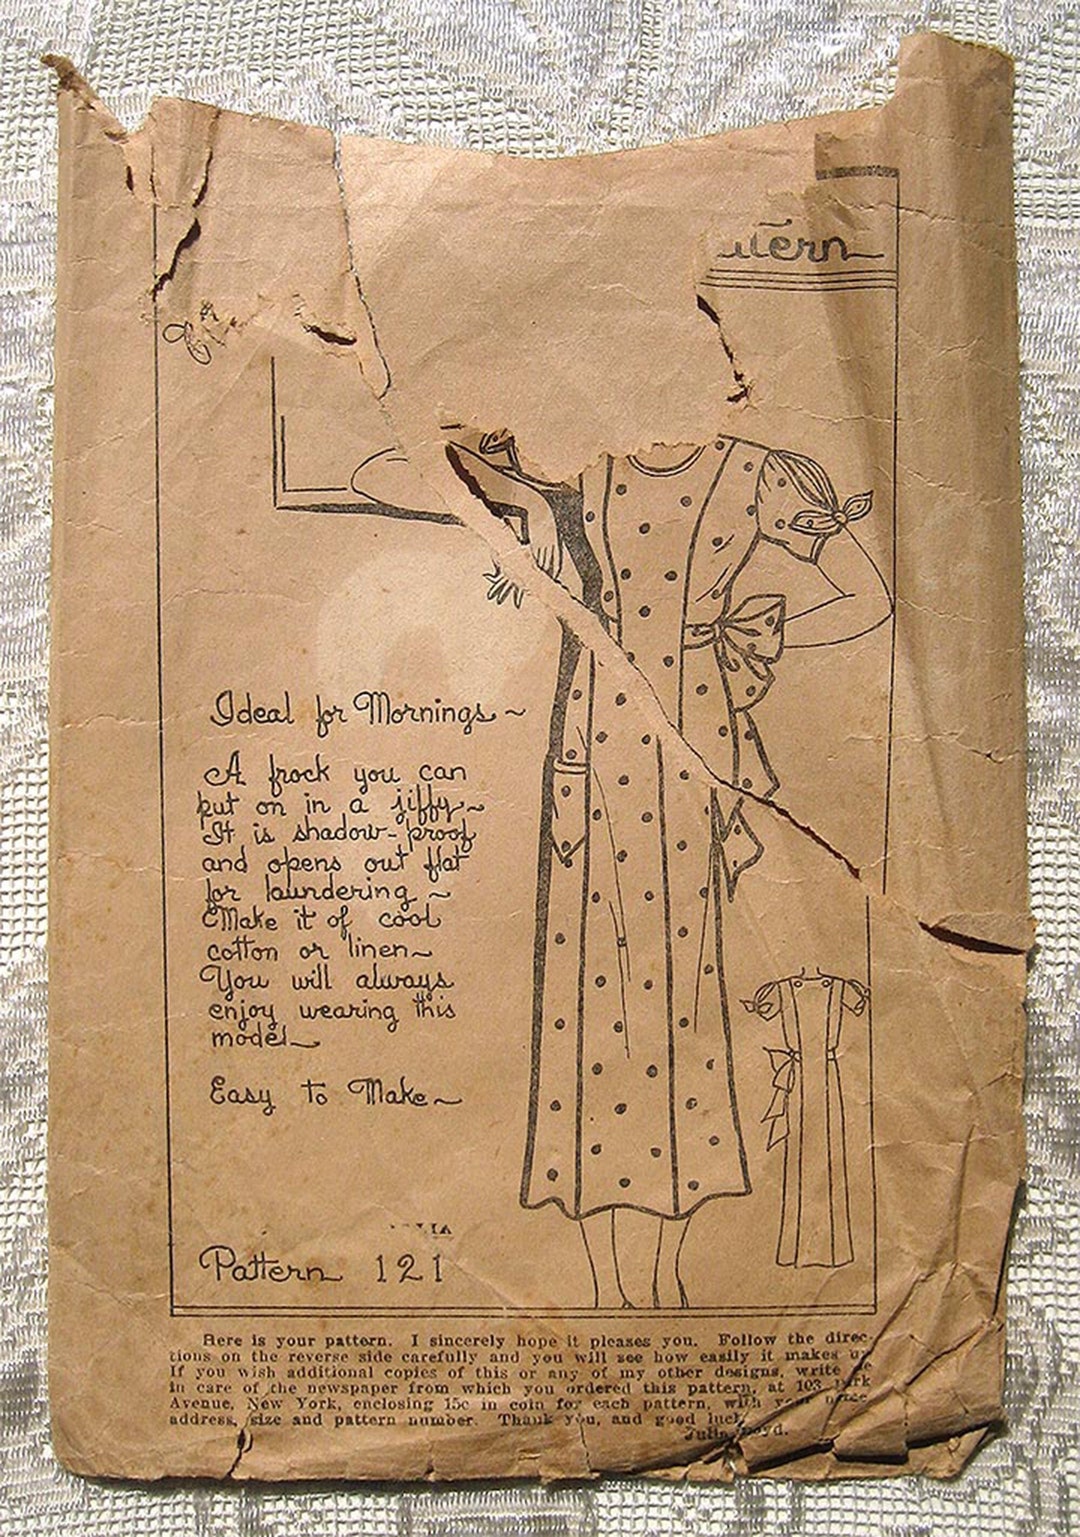 Ideal for Mornings~
A frock you can
put on in a jiffy~
It is shadow-proof
and opens out flat
for laundering~
Make it of cool
cotton or linen~
You will always
enjoy wearing this
model~
Easy to Make~
Pattern 121
Here is your pattern. I sincerely hope it pleases you. Follow the direc-
tions on the reverse side carefully and you will see how easily it makes
If you wish additional copies of this or any of my other designs, write
in care of the newspaper from which you ordered this pattern, at 103
Avenue, New York, enclosing 15c in coin for each pattern, with your
address, size and pattern number. Thank you, and good luck,
Julia